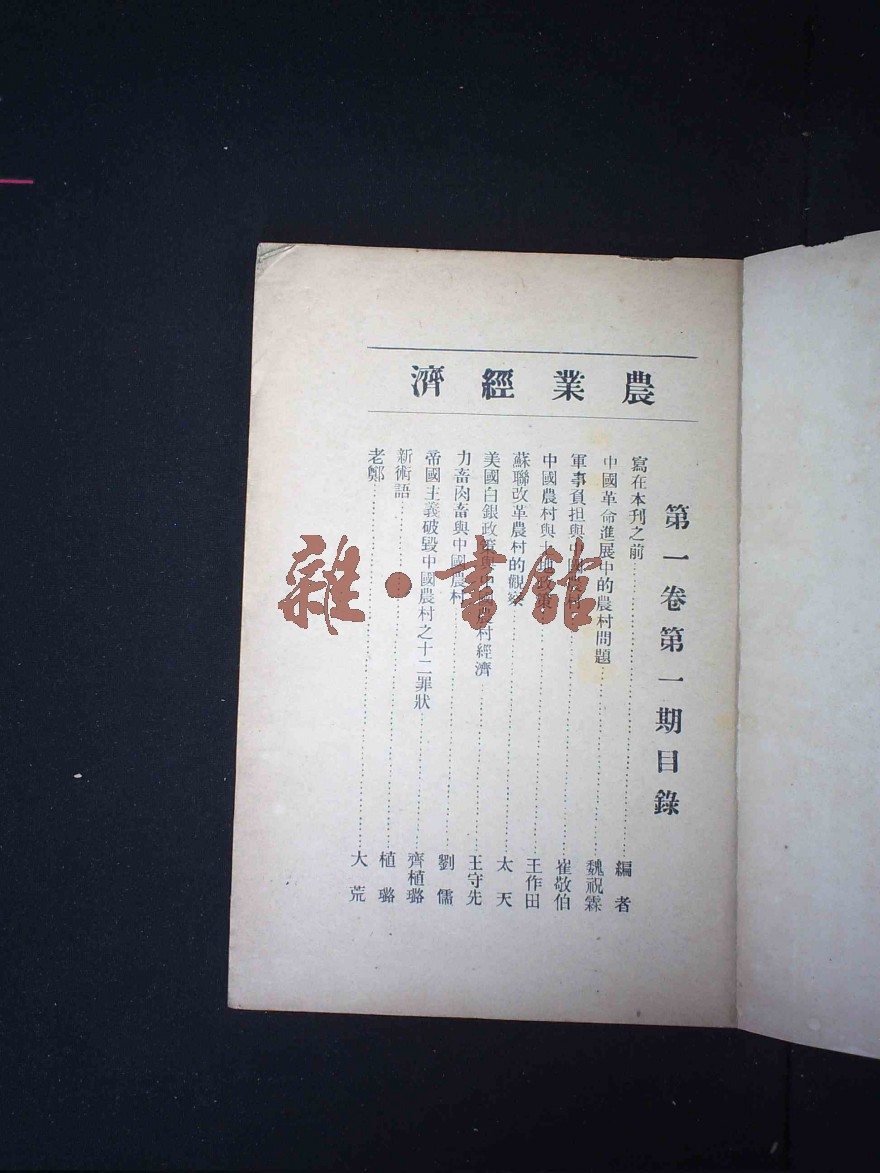 農業經濟
第一卷第一期目錄
寫在本刊之前……編者
中國革命進展中的農村問題……魏祝霖
軍事負担與中國農村……崔敬伯
中國農村與土地政策……王作田
蘇聯改革農村的觀察……太天
美國白銀政策與中國農村經濟……王守先
力畜肉畜與中國農村……劉儒
帝國主義破毀中國農村之十二罪狀……齊植璐
新術語……植璐
老鄭……大荒
雜·書館